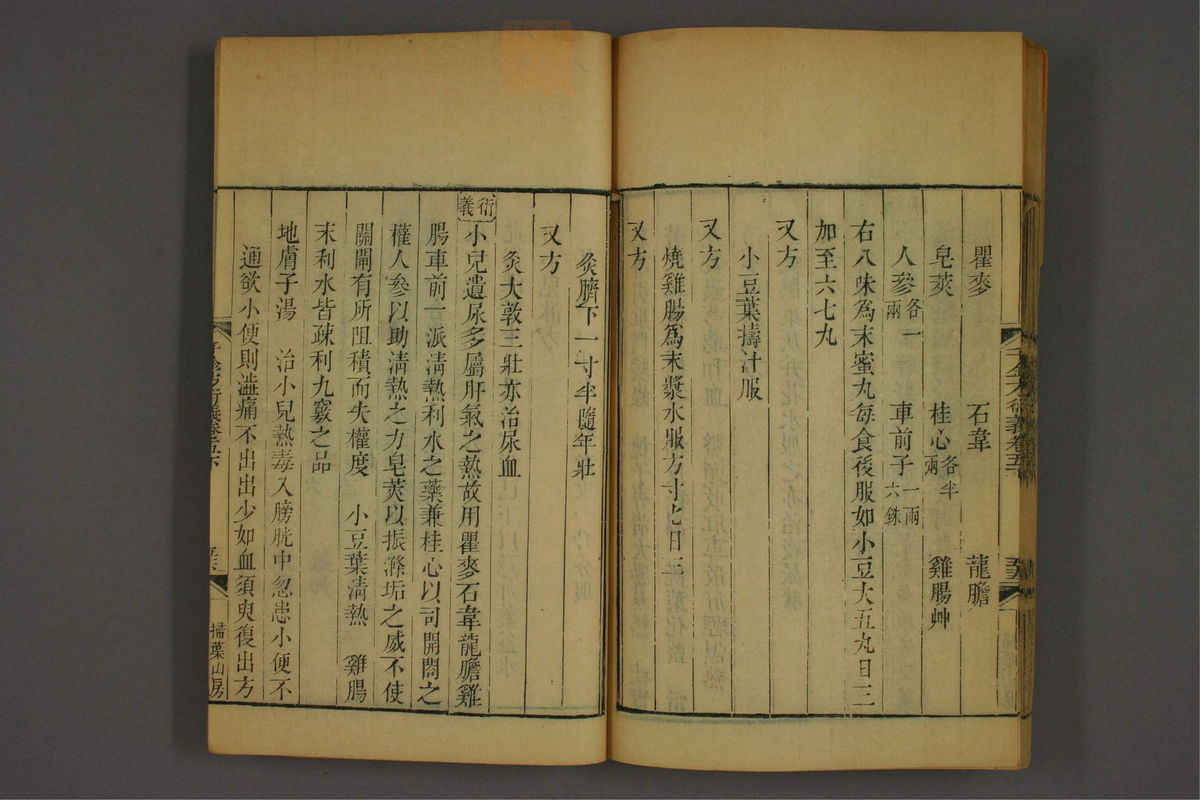 瞿麥　石韋　龍膽
皂莢　桂心各半兩　雞腸艸
人參各一兩　車前子一兩六銖
右八味爲末蜜丸每食後服如小豆大五丸日三
加至六七丸
又方
小豆葉擣汁服
又方
燒雞腸爲末漿水服方寸匕日三
又方
灸臍下一寸半隨年壯
又方
灸大敦三壯亦治尿血
衍義
小兒遺尿多屬肝氣之熱故用瞿麥石韋龍膽雞
腸車前一派清熱利水之藥兼桂心以司開闔之
權人參以助清熱之力皂莢以振滌垢之威不使
關開有所阻積而失權度　小豆葉清熱　雞腸
末利水皆疎利九竅之品
地膚子湯　治小兒熱毒入膀胱中忽患小便不
通欲小便則澁痛不出出少如血須臾復出方
千金方衍義卷五下
掃葉山房